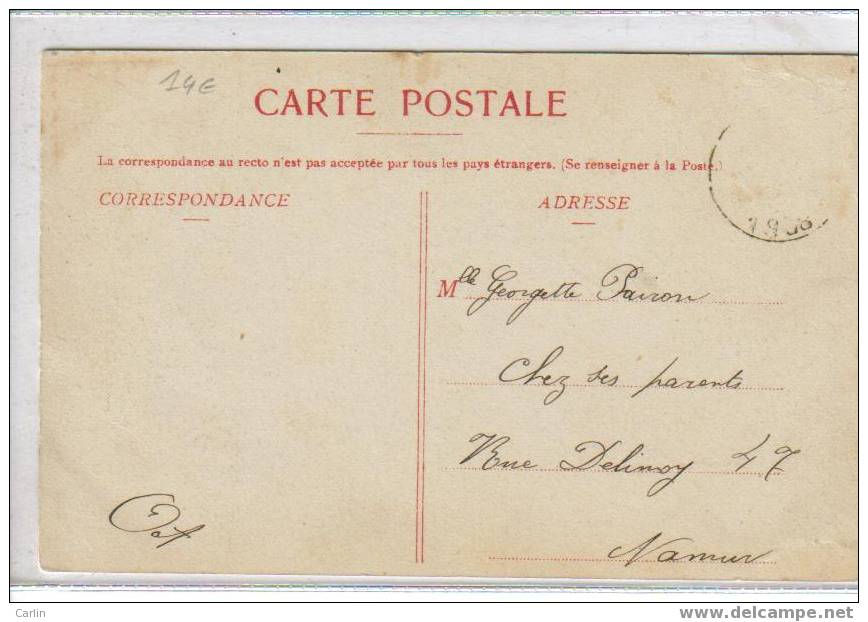 14€
CARTE POSTALE
La correspondance au recto n'est pas acceptée par tous les pays étrangers. (Se renseigner à la Poste.)
CORRESPONDANCE
ADRESSE
Mlle Georgette Pairon
Chez ses parents
Rue Delimoy 47
Namur
Carlin
delcampe.net